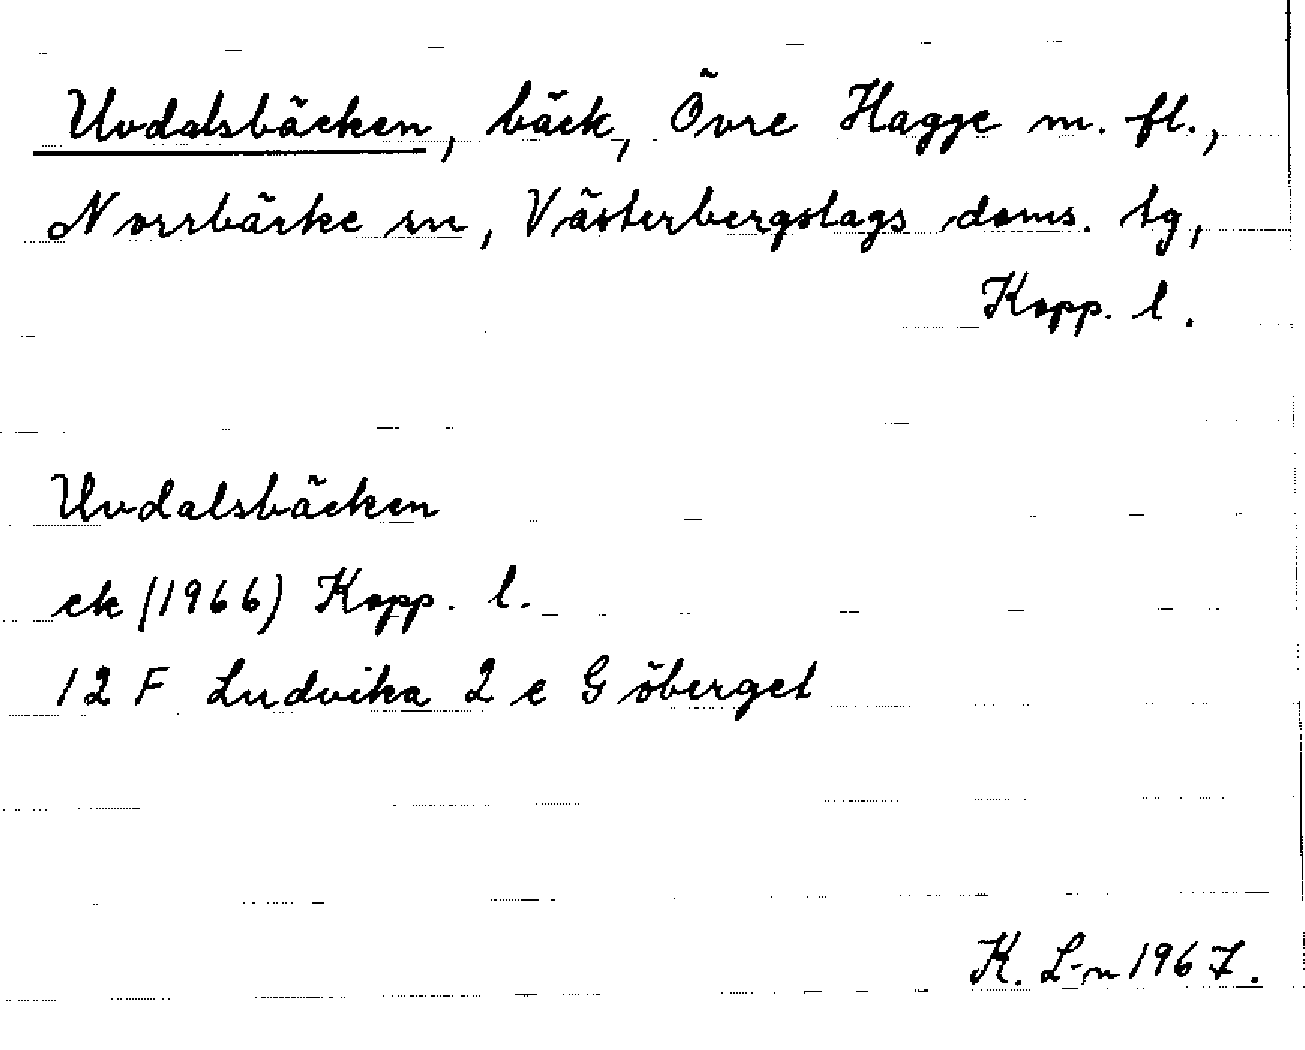 Uvdalsbäcken, bäck, Övre Hagge m. fl.,
Norrbärke sn, Västerbergslags doms. tg,
Kopp. l.
Uvdalsbäcken
ek (1966) Kopp. l.
12 F Ludvika 2 e Göberget
K. L-n 1967.